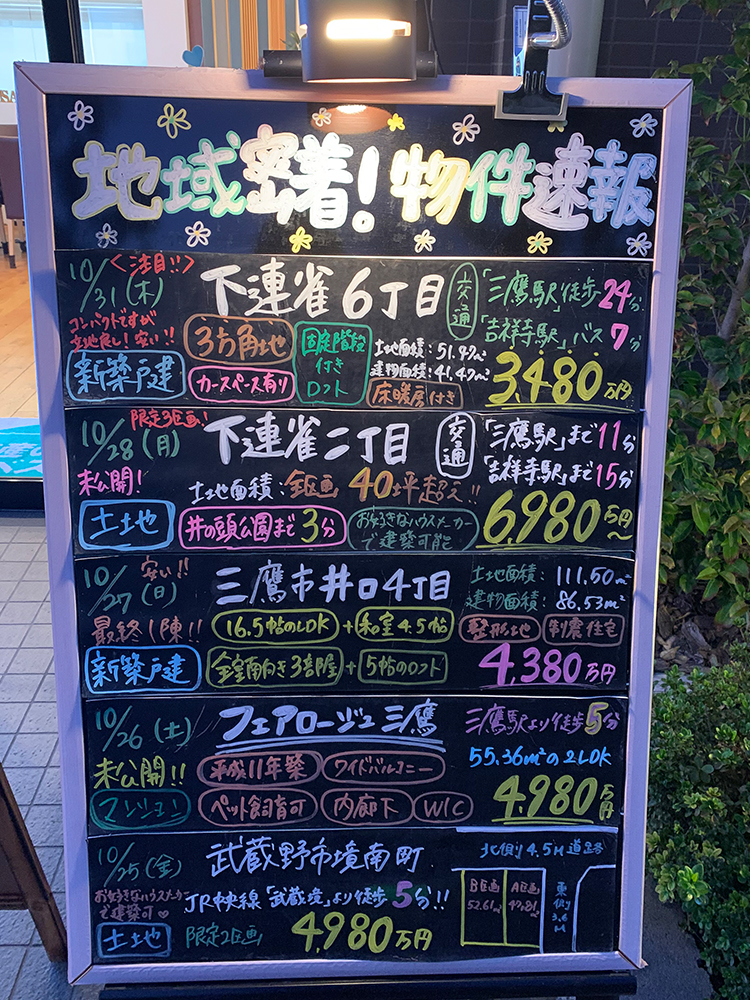 地域密着！物件速報
10/31(木)
<注目!!>
下連雀6丁目
交通
「三鷹駅」徒歩24分
「吉祥寺駅」バス7分
コンパクトですが
立地良し！安い!!
新築戸建
3方角地
カースペース有り
固定階段
付き
ロフト
土地面積：51.97㎡
建物面積：41.47㎡
床暖房付き
3,480万円
限定3区画！
10/28(月)
下連雀二丁目
交通
「三鷹駅」まで11分
「吉祥寺駅」まで15分
未公開！
土地面積：全区画40坪超え!!
土地
井の頭公園まで3分
お好きなハウスメーカー
で建築可能
6,980万円～
10/27(日)
安い!!
三鷹市井口4丁目
土地面積：111.50㎡
建物面積：86.53m²
最終1陳!!
16.5帖のLDK+和室4.5帖
整形地
制震住宅
新築戸建
全室南向き3部屋+5帖のロフト
4,380万円
10/26(土)
フェアロージュ三鷹
三鷹駅より徒歩5分
55.36m²の2LDK
未公開!!
平成11年築
ワイドバルコニー
マンション
ペット飼育可
内廊下
WIC
4,980万円
10/25(金)
武蔵野市境南町
お好きなハウスメーカー
で建築可♡
JR中央線「武蔵境」より徒歩5分!!
土地
限定2区画！
4,980万円
北側4.5M道路
B区画
52.61㎡
A区画
東側3.6M